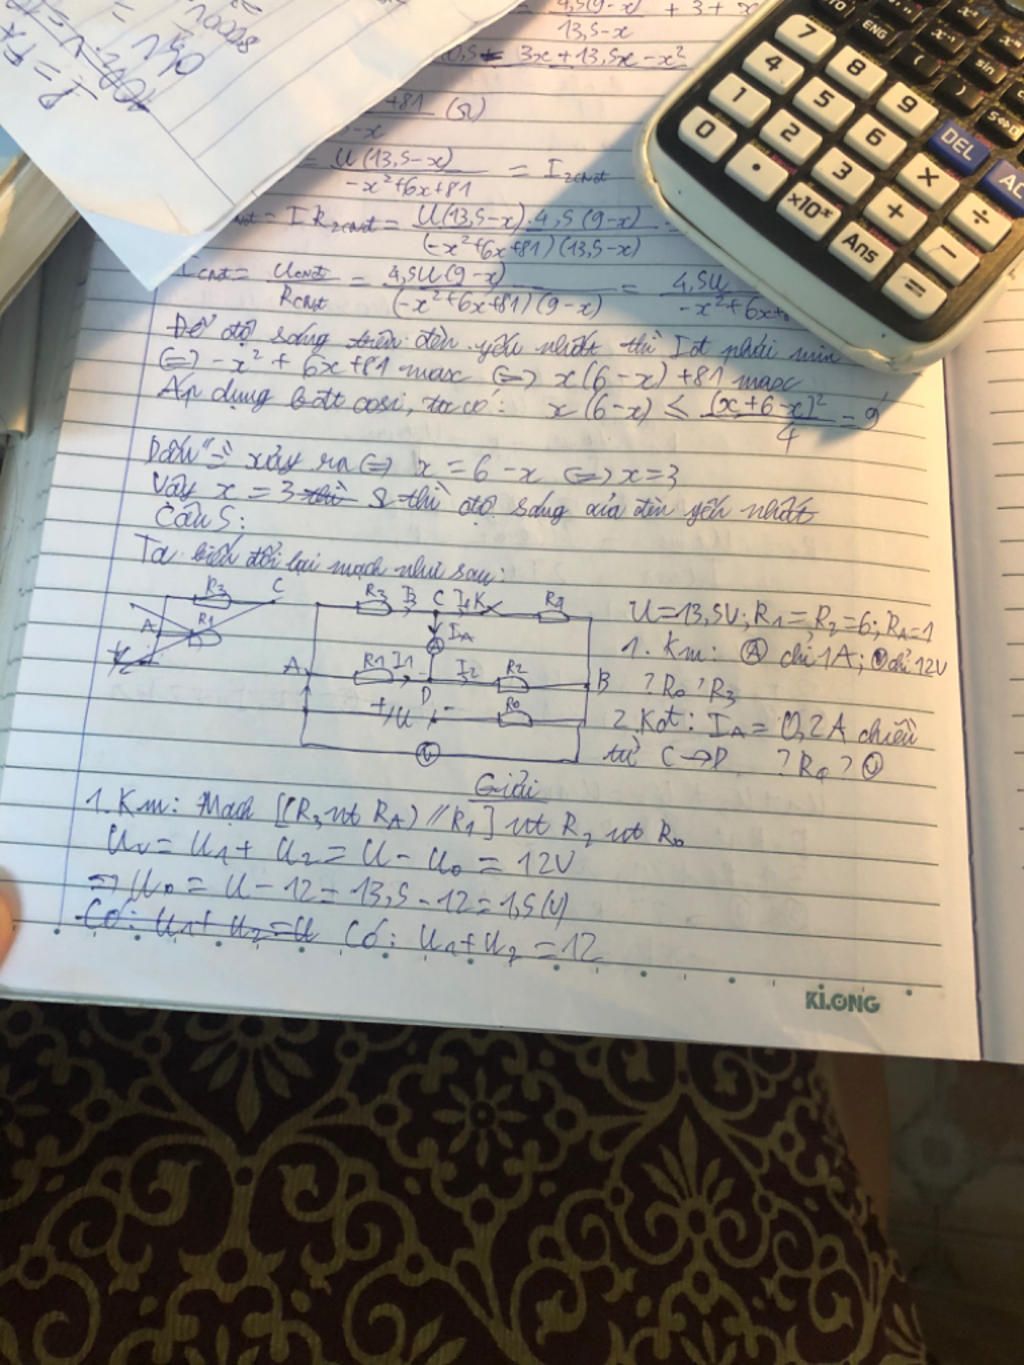 4,5(9-x) + 3 + x
13,5-x
3x+13,5x-x²
+81 (Ω)
U(13,5-x) = I2CNđ
-x²+6x+81
= I R2CNđ = U(13,5-x).4,5(9-x)
(-x²+6x+81)(13,5-x)
ICNđ = UCNđ = 4,5U(9-x) = 4,5U
RCNđ (-x²+6x+81)(9-x) -x²+6x+
Để độ sáng trên đèn yếu nhất thì Iđ phải min
<=> -x²+6x+81 max <=> x(6-x)+81 max
Áp dụng bđt cosi, ta có: x(6-x) ≤ (x+6-x)² = 9
4
Dấu "=" xảy ra <=> x=6-x <=> x=3
Vậy x=3 Ω thì độ sáng của đèn yếu nhất
Câu 5:
Ta biến đổi lại mạch như sau:
R3 C
A R1
R3 I3 C I4 K
IA A
A R1 I1 D I2 R2 B
+ U - R0
V
U=13,5V; R1=R2=6; RA=1
1. Km: Ⓐ chỉ 1A; Ⓥ chỉ 12V
? R0 ? R3
2. Kđ: IA = 0,2A chiều
từ C → D ? R4 ? Ⓥ
Giải
1. Km: Mạch [(R3 nt RA) // R1] nt R2 nt R0
Uv = U1 + U2 = U - U0 = 12V
=> U0 = U - 12 = 13,5 - 12 = 1,5(V)
Có: U1 + U2 = U Có: U1+U2 = 12
KLONG
7 8 9 DEL AC
4 5 6 × ÷
1 2 3 + −
0 . ×10ˣ Ans =
ENG ( ) sin S⇔D